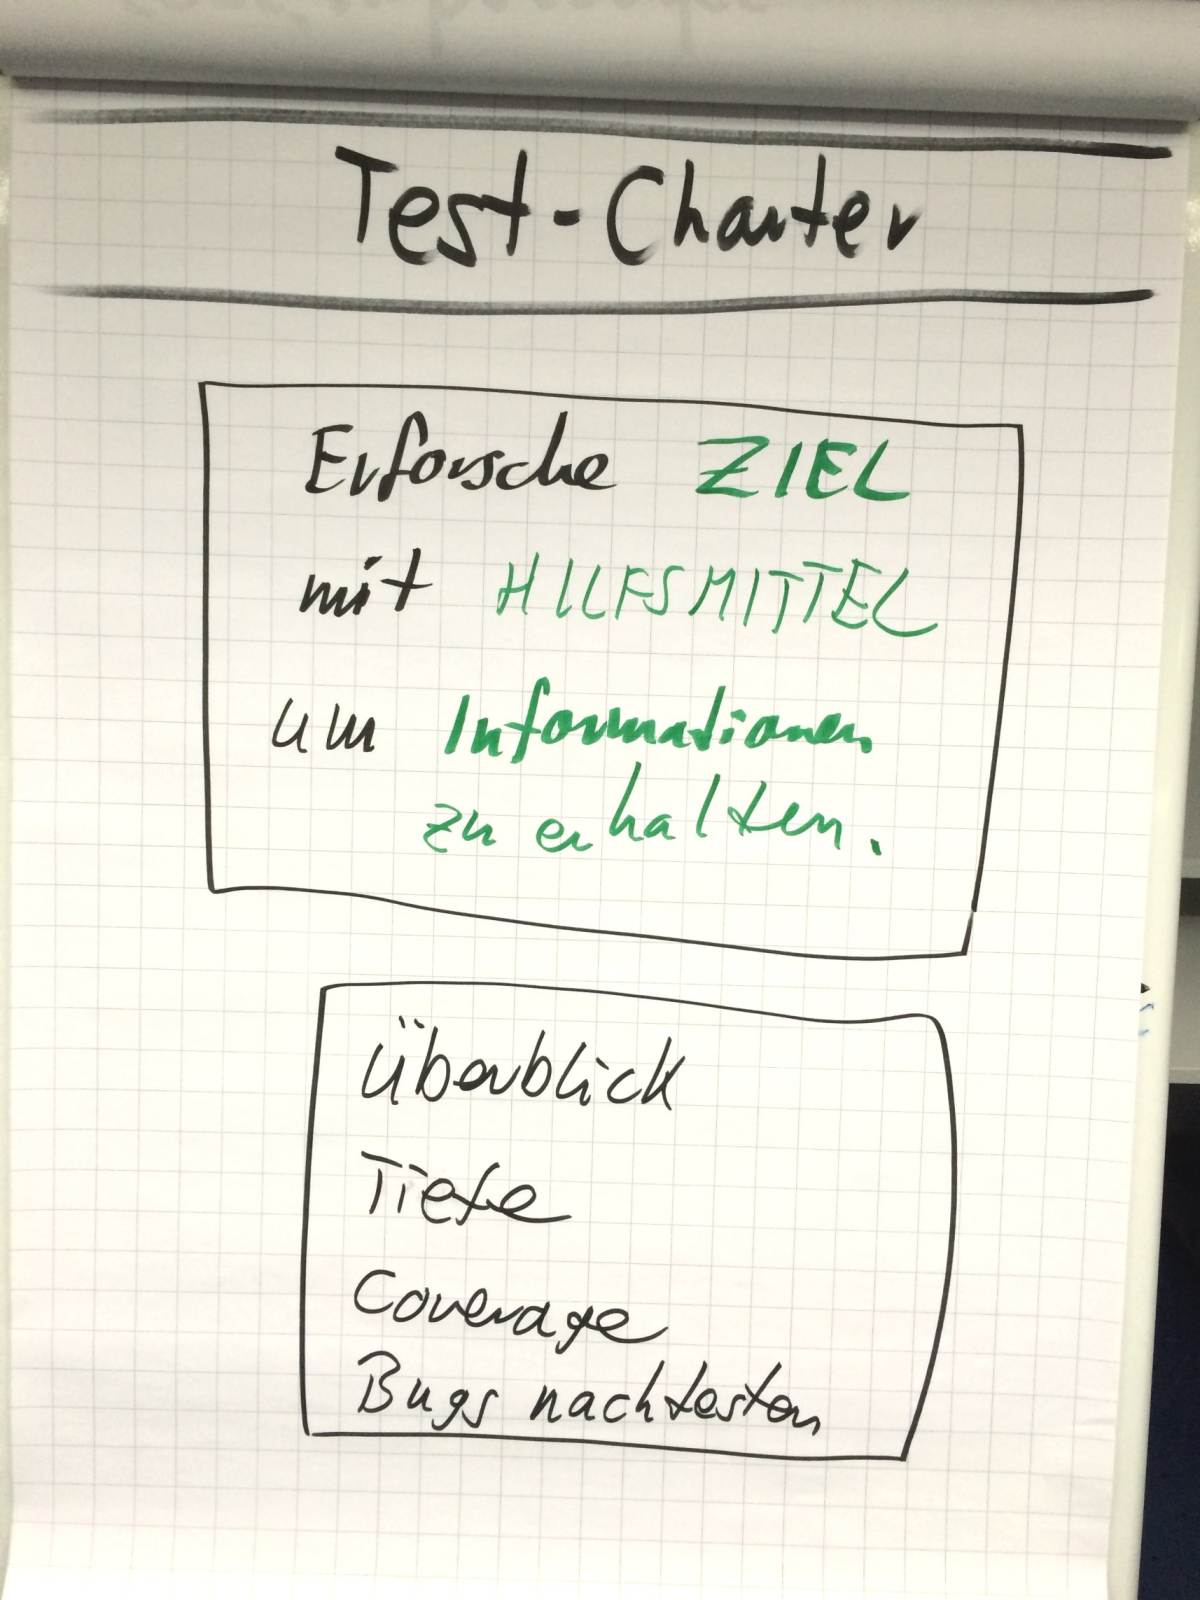 Test-Charter
Erforsche ZIEL
mit HILFSMITTEL
um Informationen
zu erhalten.
Überblick
Tiefe
Coverage
Bugs nachtesten